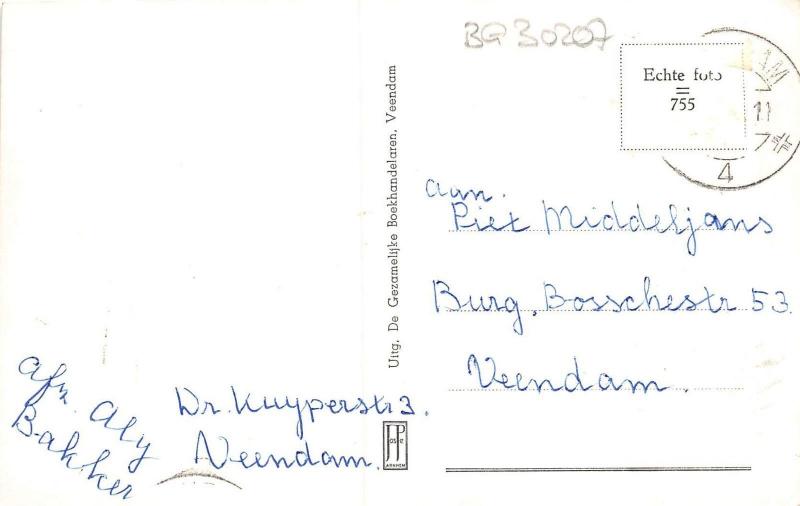 BG 30207
AM
11
7
4
Echte foto
=
755
Uitg. De Gezamelijke Boekhandelaren, Veendam
aan.
Piet Middeljans
Burg. Bosschestr 53.
Veendam.
Afz. Aly
Bakker
Dr. Kuyperstr 3.
Veendam.
JosPé
ARNHEM